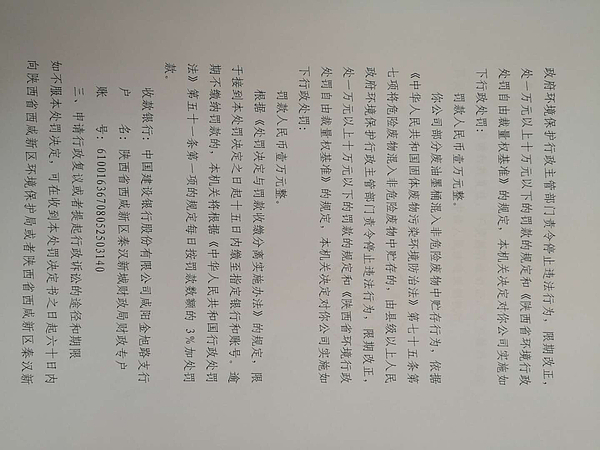 政府环境保护行政主管部门责令停止违法行为，限期改正，
处一万元以上十万元以下的罚款的规定和《陕西省环境行政
处罚自由裁量权基准》的规定，本机关决定对你公司实施如
下行政处罚：
罚款人民币壹万元整。
你公司部分废油墨桶混入非危险废物中贮存行为，依据
《中华人民共和国固体废物污染环境防治法》第七十五条第
七项将危险废物混入非危险废物中贮存的，由县级以上人民
政府环境保护行政主管部门责令停止违法行为，限期改正，
处一万元以上十万元以下的罚款的规定和《陕西省环境行政
处罚自由裁量权基准》的规定，本机关决定对你公司实施如
下行政处罚：
罚款人民币壹万元整。
根据《处罚决定与罚款收缴分离实施办法》的规定，限
于接到本处罚决定之日起十五日内缴至指定银行和账号。逾
期不缴纳罚款的，本机关将根据《中华人民共和国行政处罚
法》第五十一条第一项的规定每日按罚款数额的 3%加处罚
款。
收款银行：中国建设银行股份有限公司咸阳金旭路支行
户 名：陕西省西咸新区秦汉新城财政局财政专户
账 号：61001636708052503140
三、申请行政复议或者提起行政诉讼的途径和期限
如不服本处罚决定，可在收到本处罚决定书之日起六十日内
向陕西省西咸新区环境保护局或者陕西省西咸新区秦汉新